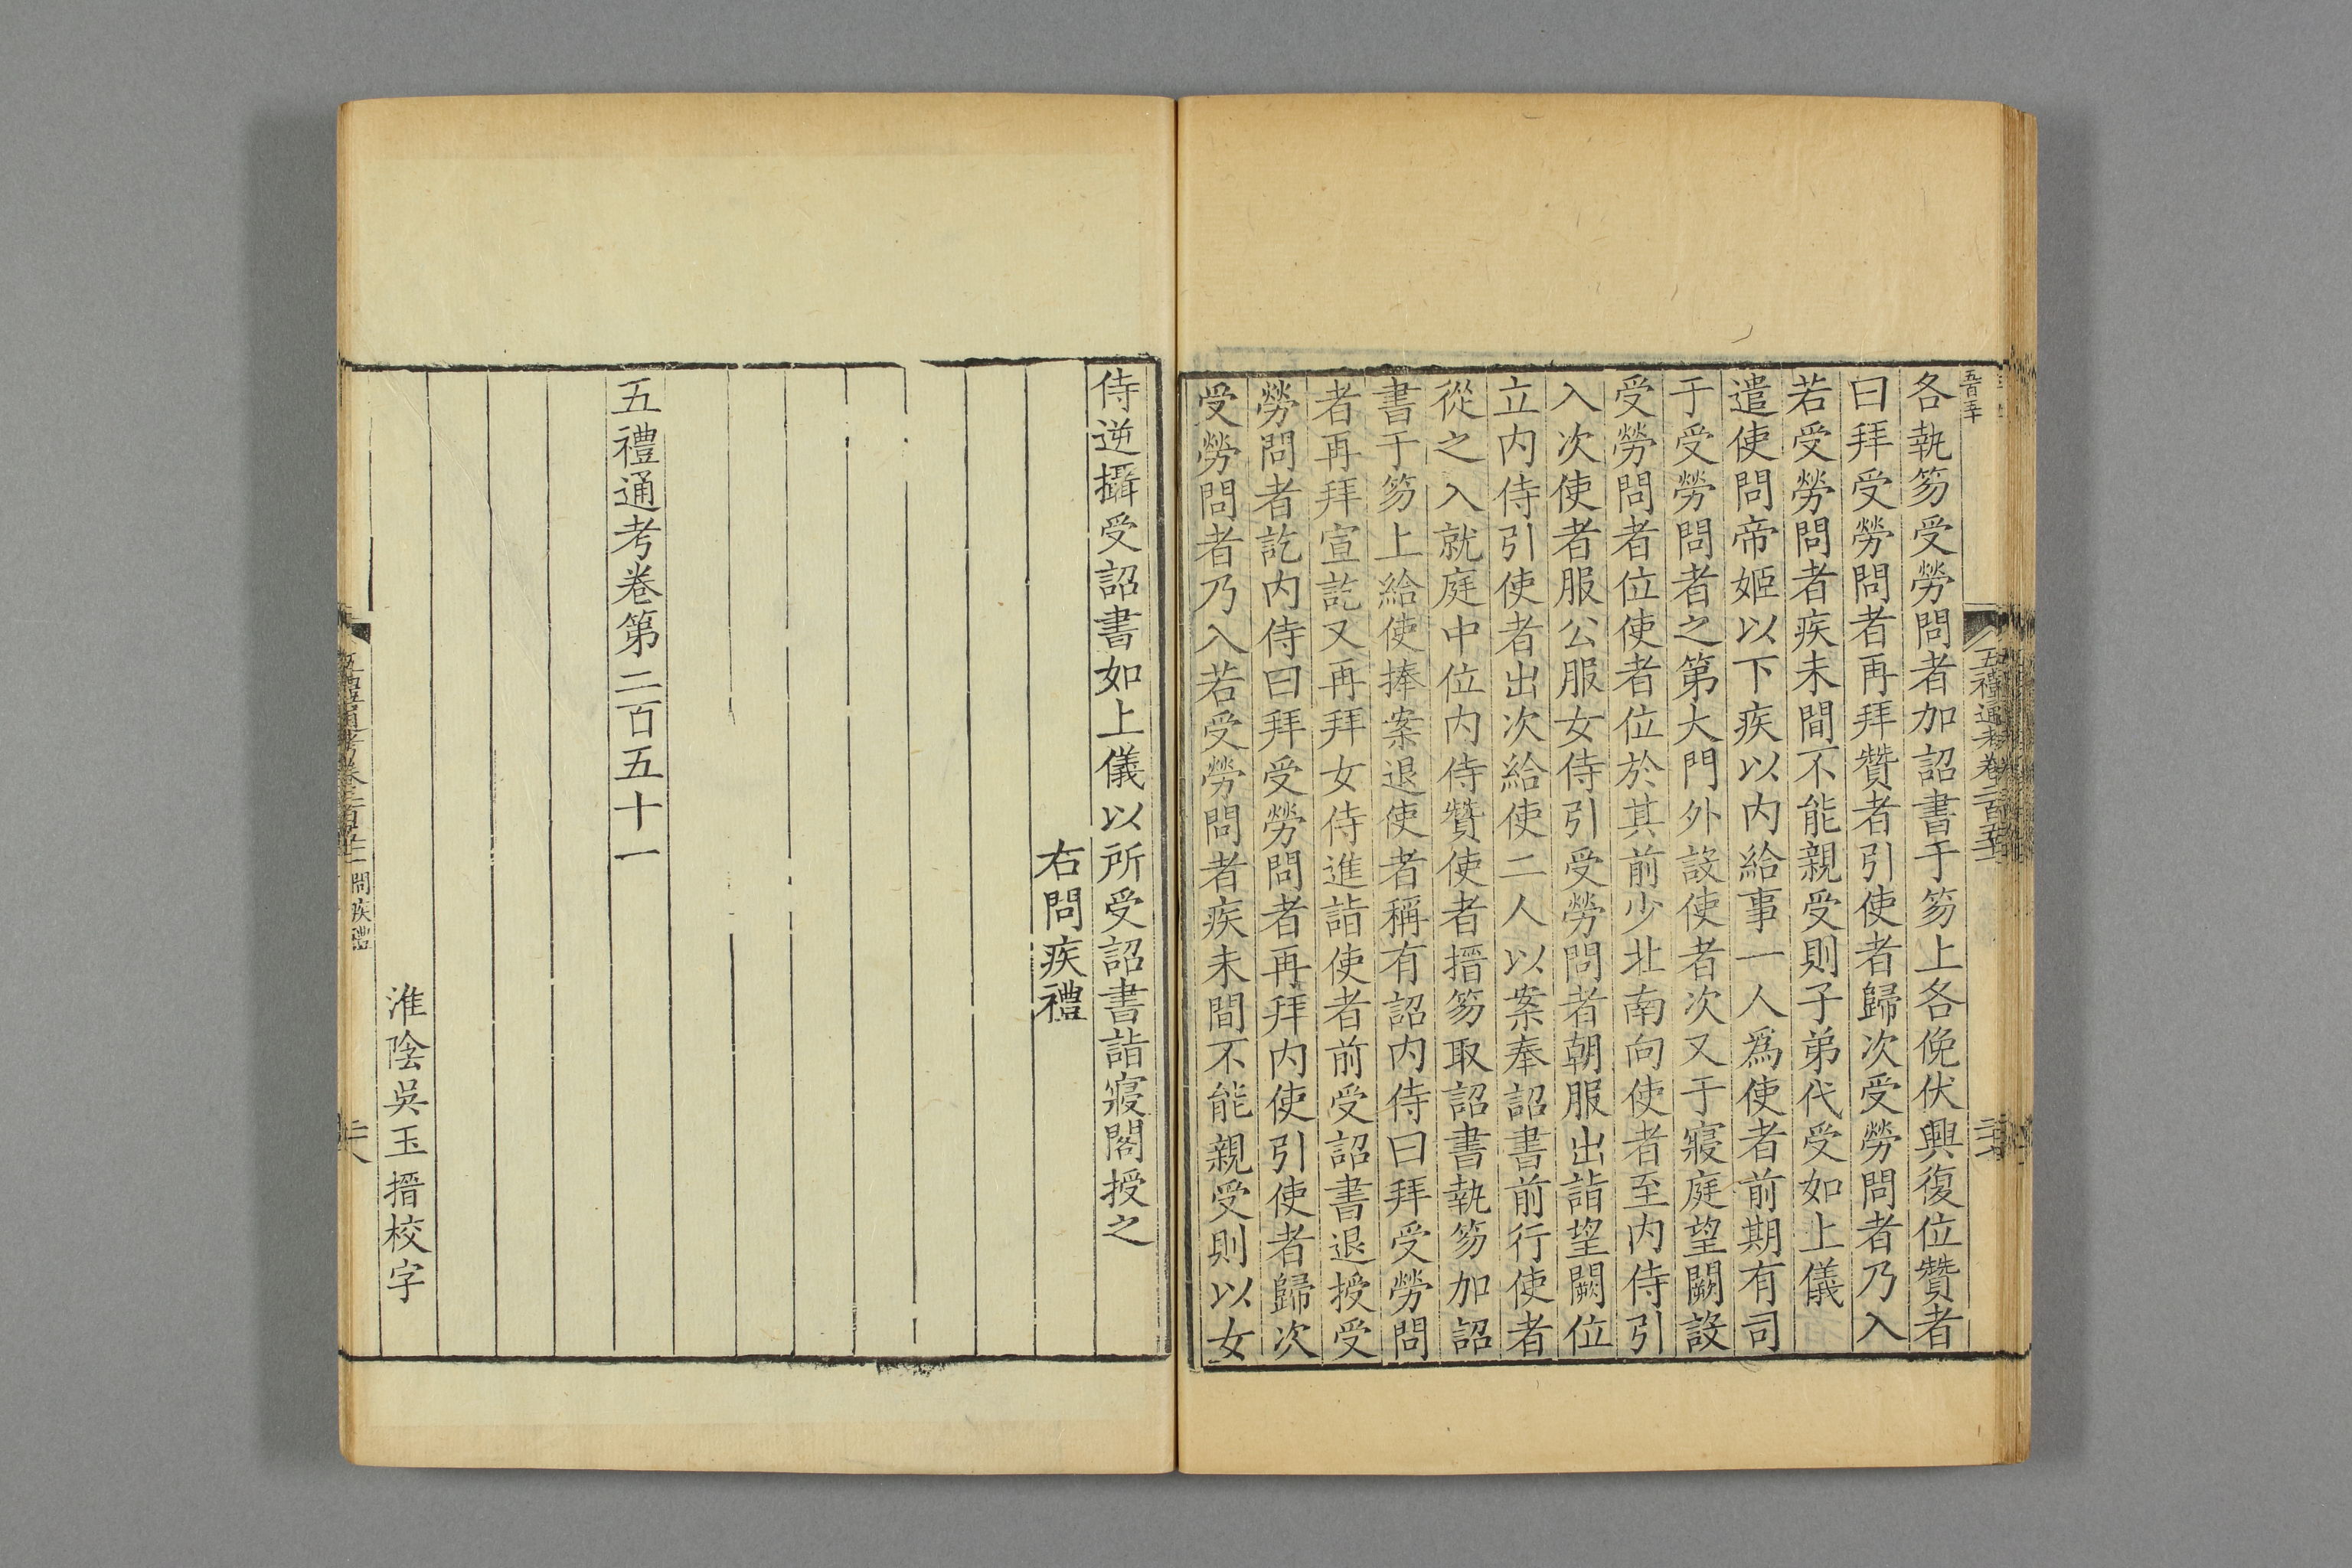 各執笏受勞問者加詔書于笏上各俛伏興復位贊者
曰拜受勞問者再拜贊者引使者歸次受勞問者乃入
若受勞問者疾未間不能親受則子弟代受如上儀
遣使問帝姬以下疾以内給事一人爲使者前期有司
于受勞問者之第大門外設使者次又于寢庭望闕設
受勞問者位使者位於其前少北南向使者至内侍引
入次使者服公服女侍引受勞問者朝服出詣望闕位
立内侍引使者出次給使二人以案奉詔書前行使者
從之入就庭中位内侍贊使者搢笏取詔書執笏加詔
書于笏上給使捧案退使者稱有詔内侍曰拜受勞問
者再拜宣訖又再拜女侍進詣使者前受詔書退授受
勞問者訖内侍曰拜受勞問者再拜内使引使者歸次
受勞問者乃入若受勞問者疾未間不能親受則以女
侍逆攝受詔書如上儀以所受詔書詣寢閣授之
右問疾禮
五禮通考卷第二百五十一
淮陰吳玉搢校字
問疾禮